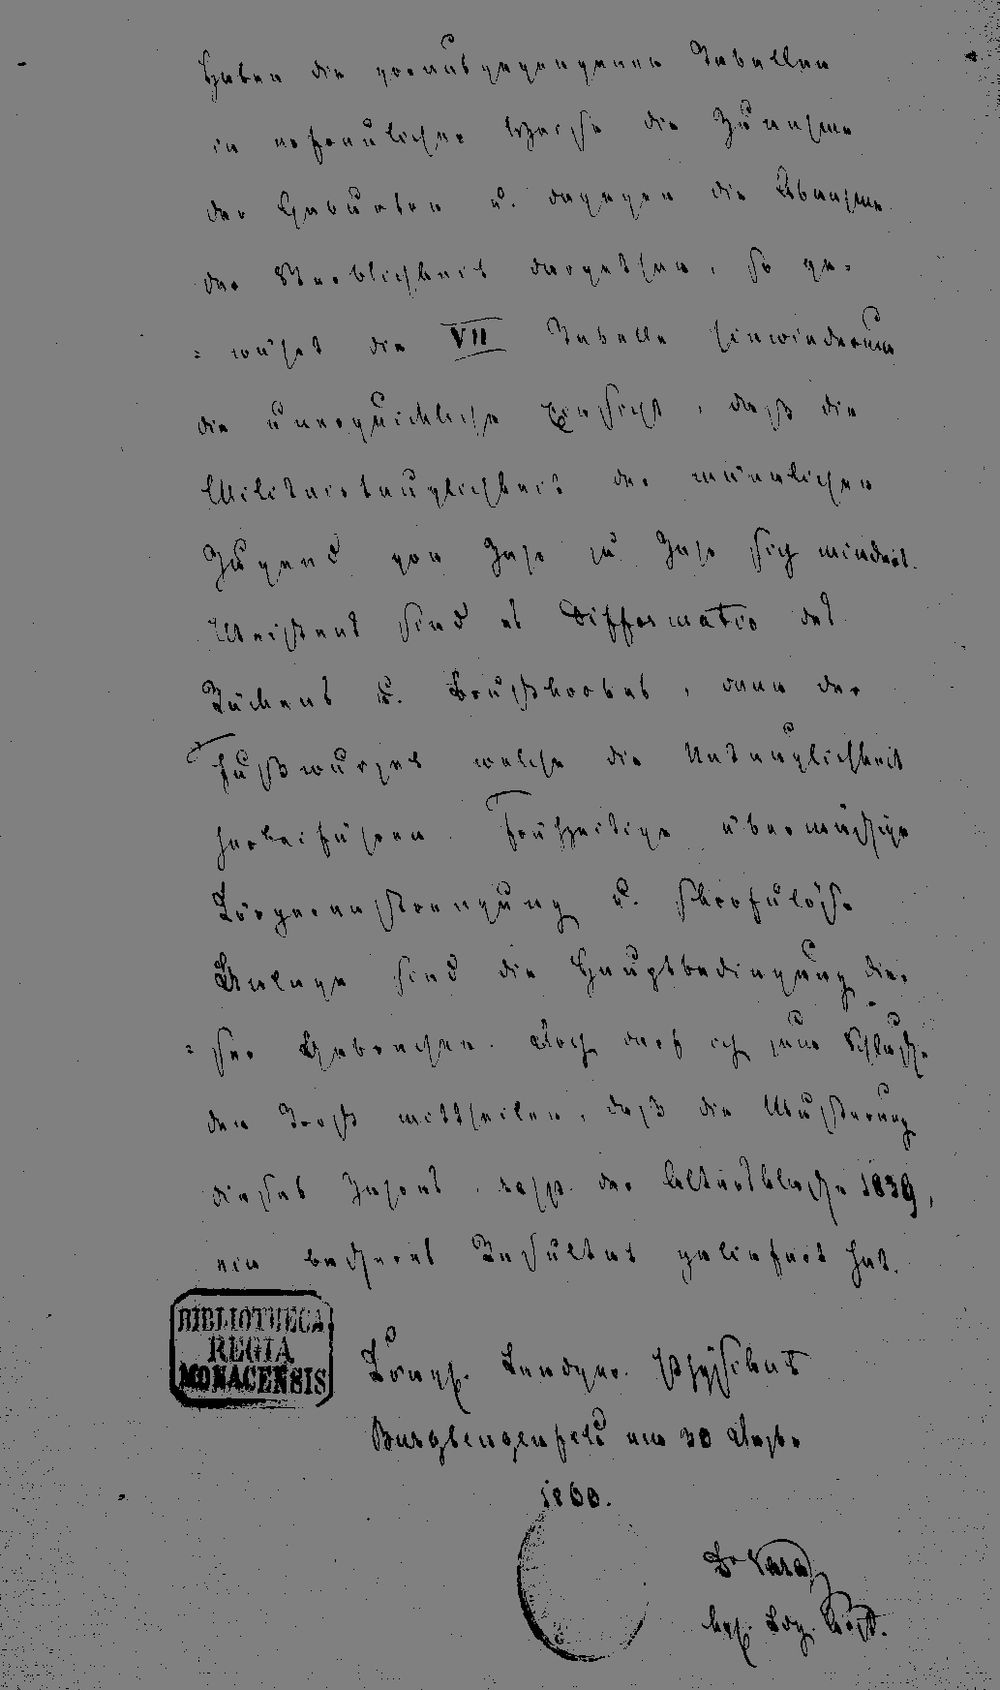 Haben die vorausgegangenen Tabellen
in erfreulicher Weise die Zunahme
der Geburten u. dagegen die Abnahme
der Sterblichkeit dargethan, so ge-
=währt die VII Tabelle hinwiederum
die unerquickliche Einsicht, daß die
Militairtauglichkeit der männlichen
Jugend von Jahr zu Jahr sich mindert.
Meistens sind es Difformatio des
Rückens u. Brustkorbes, dann der
Fußwurzel welche die Untauglichkeit
herbeiführen. Frühzeitige übermäßige
Körperanstrengung u. skrofulöse
Anlage sind die Hauptbedingung die-
=ser Gebrechen. Doch darf ich zum Schluße
den Trost mittheilen, daß die Musterung
dieses Jahres, resp. der Altersklaße 1839,
ein beßeres Resultat geliefert hat.
BIBLIOTHECA
REGIA
MONACENSIS
Königl. Landger. Physikat
Burglengenfeld am 30
1860.
Dr